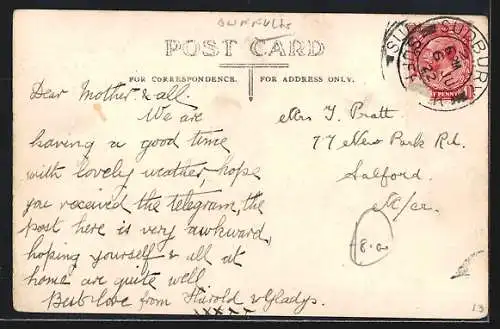 POST CARD
FOR CORRESPONDENCE.
FOR ADDRESS ONLY.
SUDBURY
Dear Mother & all.
We are
having a good time
with lovely weather, hope
you received the telegram, the
post here is very awkward,
hoping yourself & all at
home are quite well
Best love from Harold & Gladys.
xxxxx
Mrs T. Pratt
77 New Park Rd.
Salford.
M/cr.
8.0
13